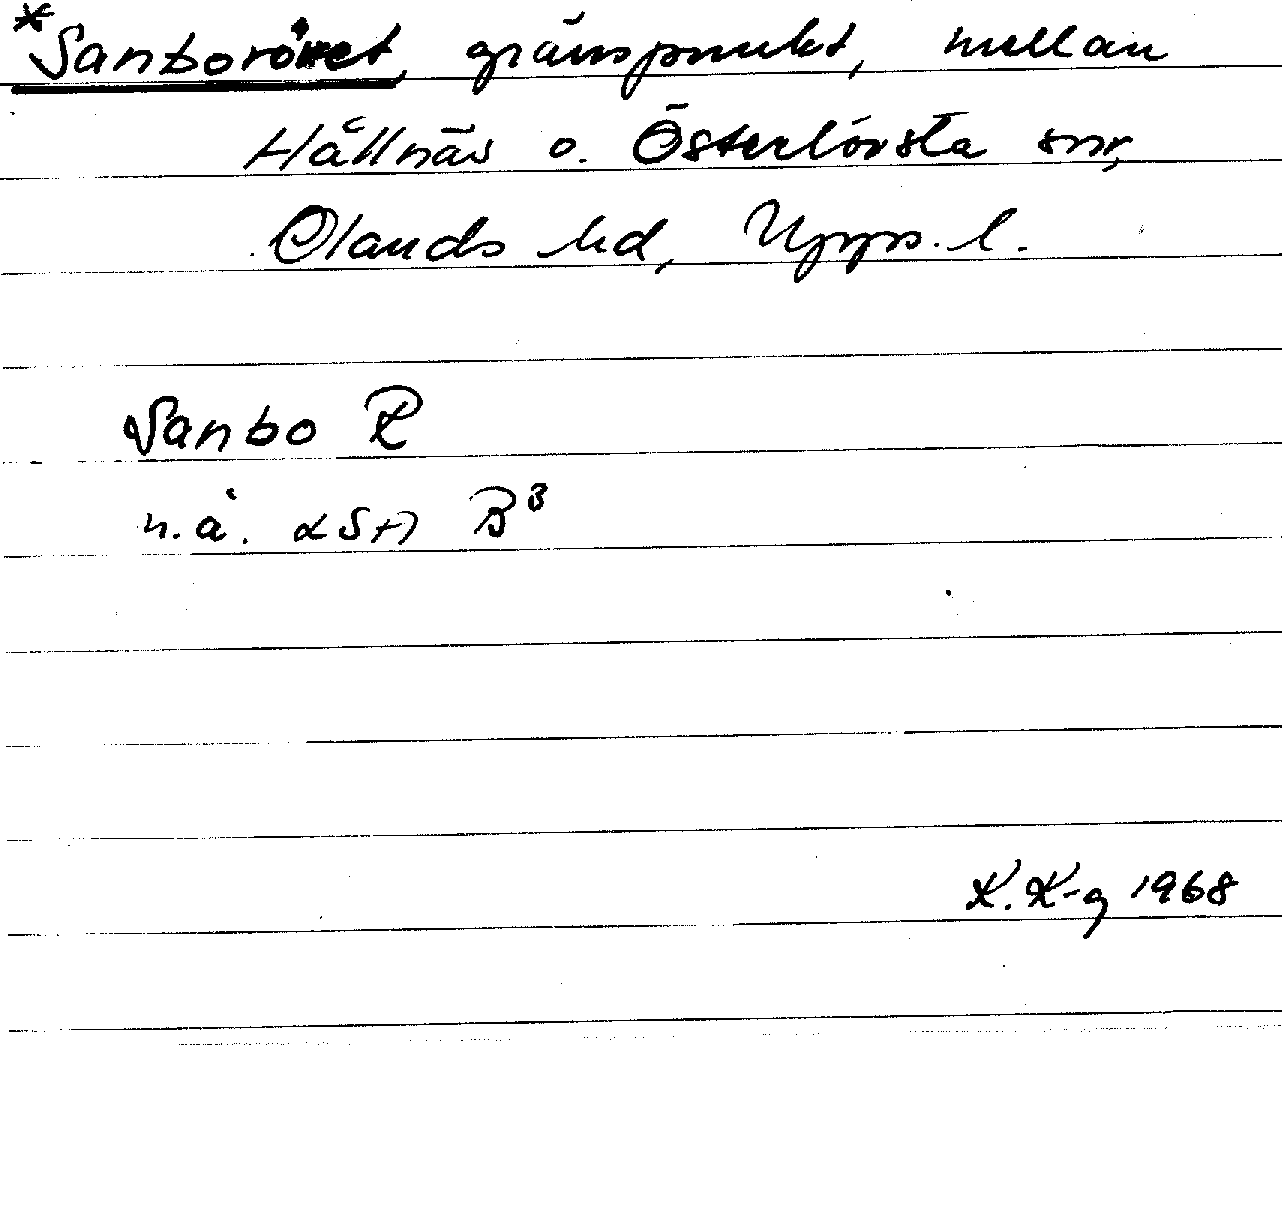 *Sanboröret, gränspunkt, mellan
Hållnäs o. Österlövsta snr,
Olands hd, Upps. l.
Sanbo R
n.å. LSA B3
K. K-g 1968